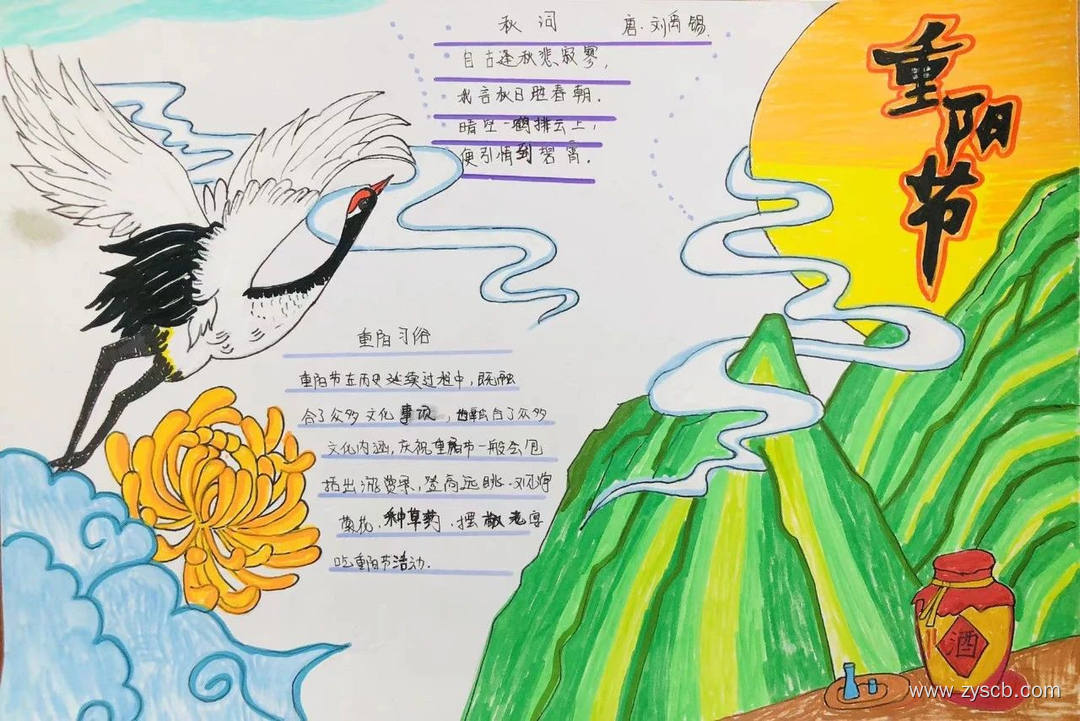 秋词 唐.刘禹锡.
自古逢秋悲寂寥,
我言秋日胜春朝.
晴空一鹤排云上,
便引诗情到碧霄.
重阳节
重阳习俗
重阳节在历史延续过程中,既融
合了众多文化事项,也融合了众多
文化内涵,庆祝重阳节一般会包
括出游赏景、登高远眺、观赏
菊花、种草药、摆敬老宴
吃重阳节活动.
酒
www.zyscb.com